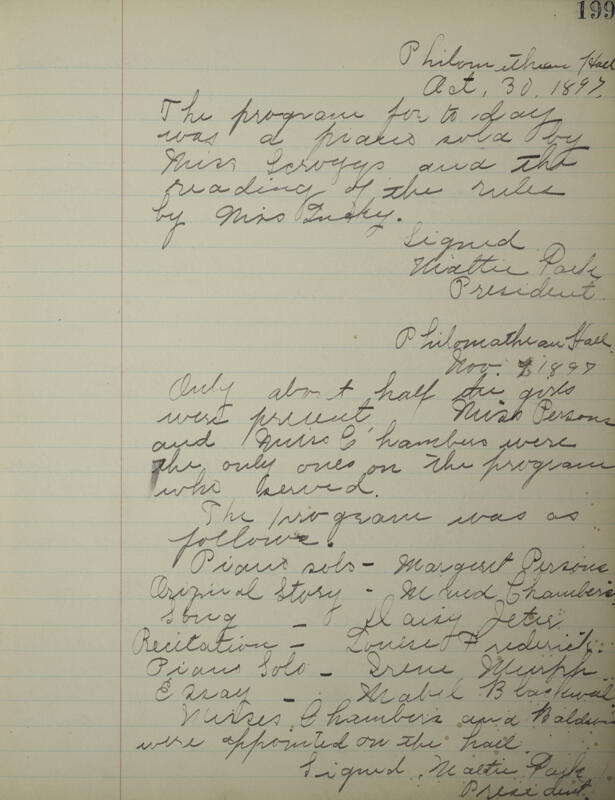 199
Philomathean Hall
Oct, 30, 1897.
The program for to day
was a piano solo by
Miss Scroggs and the
reading of the rules
by Miss
Signed
Mattie Park
President
Philomathean Hall
Nov. 1897
Only about half the girls
were present Miss Persons
and Miss Chambers were
the only ones on the program
who served.
The program was as
follows.
Piano solo - Margaret Persons
Original Story - Maud Chambers
Song - Daisy Jeter
Recitation - Louise Frederick.
Piano Solo - Irene Murph
Essay - Mabel Blackwell
Misses Chambers and Baldwin
were appointed on the hall
Signed, Mattie Park
President.